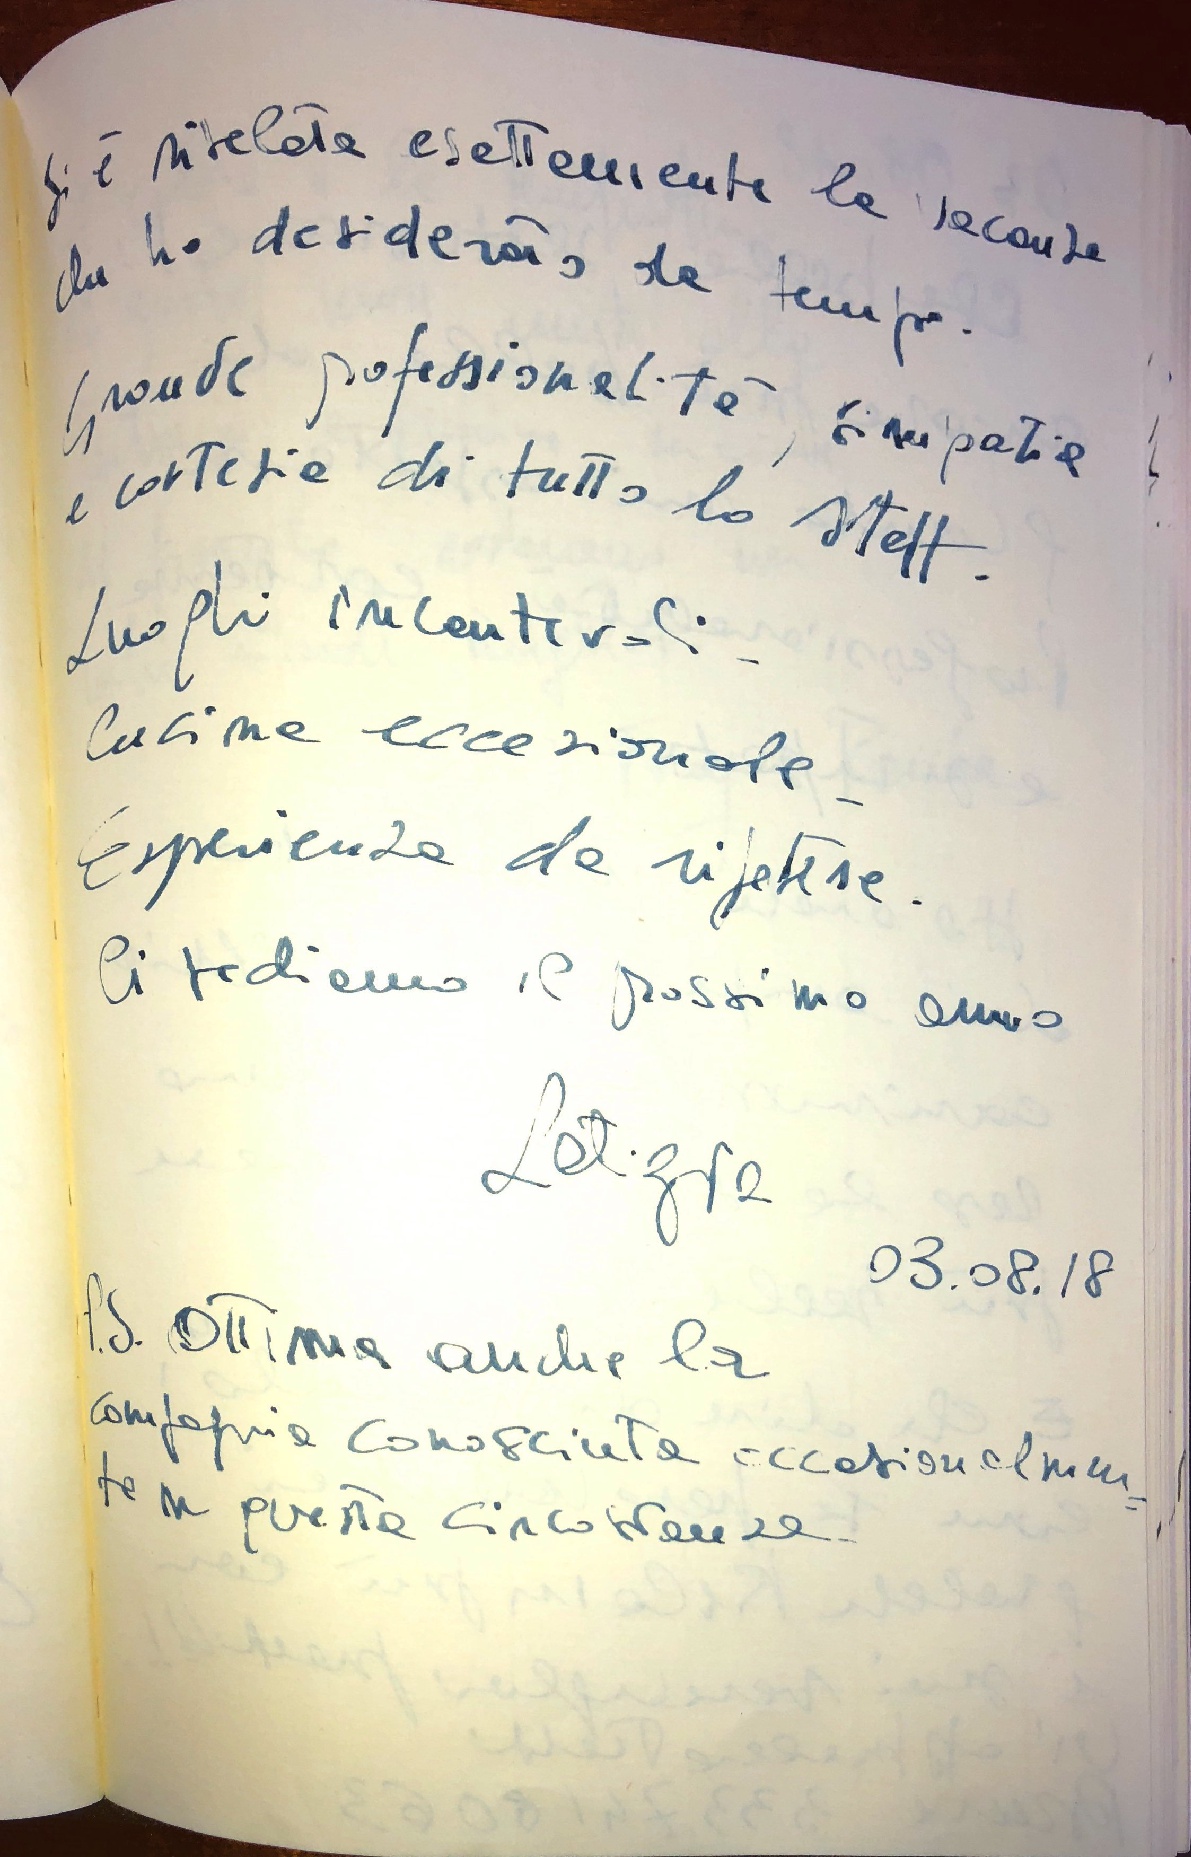 Si è rivelata esattamente la vacanza
che ho desiderato da tempo.
Grande professionalità, simpatia
e cortesia di tutto lo staff.
Luoghi incantevoli -
Cucina eccezionale -
Esperienza da ripetere.
Ci vediamo il prossimo anno
Letizia
03.08.18
P.S. Ottima anche la
compagnia conosciuta occasionalmen=
te in questa circostanza